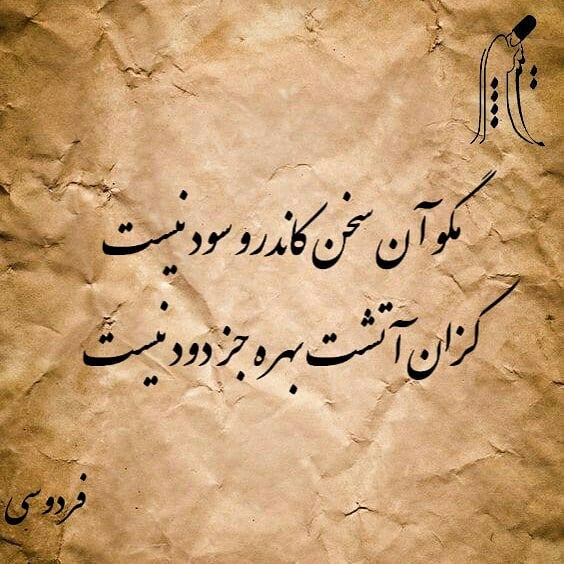 مگو آن سخن کاندرو سود نیست
کزان آتشت بهره جز دود نیست
فردوسی